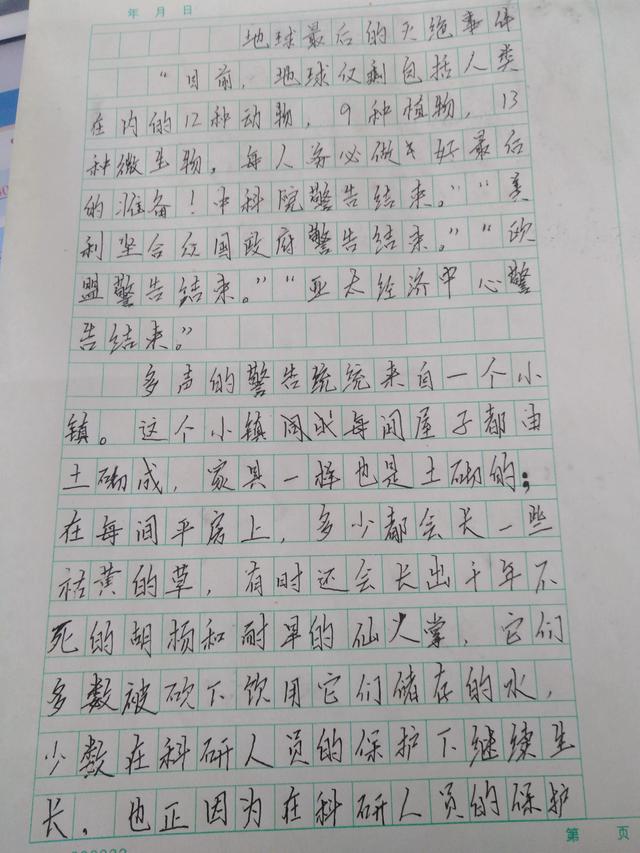 年 月 日
地球最后的灭绝事件
“目前，地球仅剩包括人类
在内的12种动物，9种植物，13
种微生物，每人务必做好最后
的准备！中科院警告结束。”“美
利坚合众国政府警告结束。”“欧
盟警告结束。”“亚太经济中心警
告结束。”
多声的警告统统来自一个小
镇。这个小镇每间屋子都由
土砌成，家具一样也是土砌的；
在每间平房上，多少都会长一些
枯黄的草，有时还会长出千年不
死的胡杨和耐旱的仙人掌，它们
多数被砍下饮用它们储存的水，
少数在科研人员的保护下继续生
长，也正因为在科研人员的保护
第 页